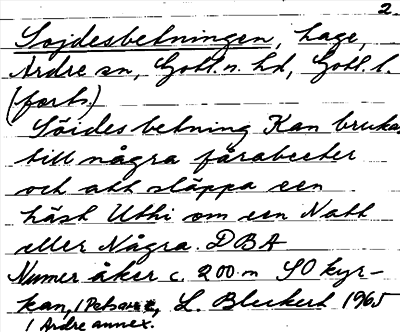 2.
Sojdesbetningen, hage,
Ardre sn, Gotl. n. hd, Gotl. l.
(forts.)
Söides betning Kan bruka
till några fårabeeter
och att släppa een
häst Uthi om een Natt
eller Några. DBA
Numer åker c. 200 m SO kyr-
kan, L. Bleckert 1965
/ Ardre annex.